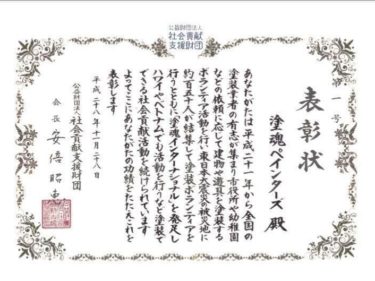 公益財団法人
社会貢献
支援財団
第一号
表彰状
塗魂ペインターズ 殿
あなたがたは平成二十一年から全国の
塗装業者の有志が集まり市役所や幼稚園
などの依頼に応じて建物や遊具を塗装する
ボランティア活動を行い東日本大震災の被災地に
約百五十人が結集して塗装ボランティアを
行うとともに塗魂インターナショナルを発足し
ハワイやベトナムでも活動を行うなど塗装で
できる社会貢献活動を続けられています
よってここにあなたがたの功績をたたえこれを
表彰します
平成二十八年十一月二十八日
公益財団法人 社会貢献支援財団
会長 安倍昭恵